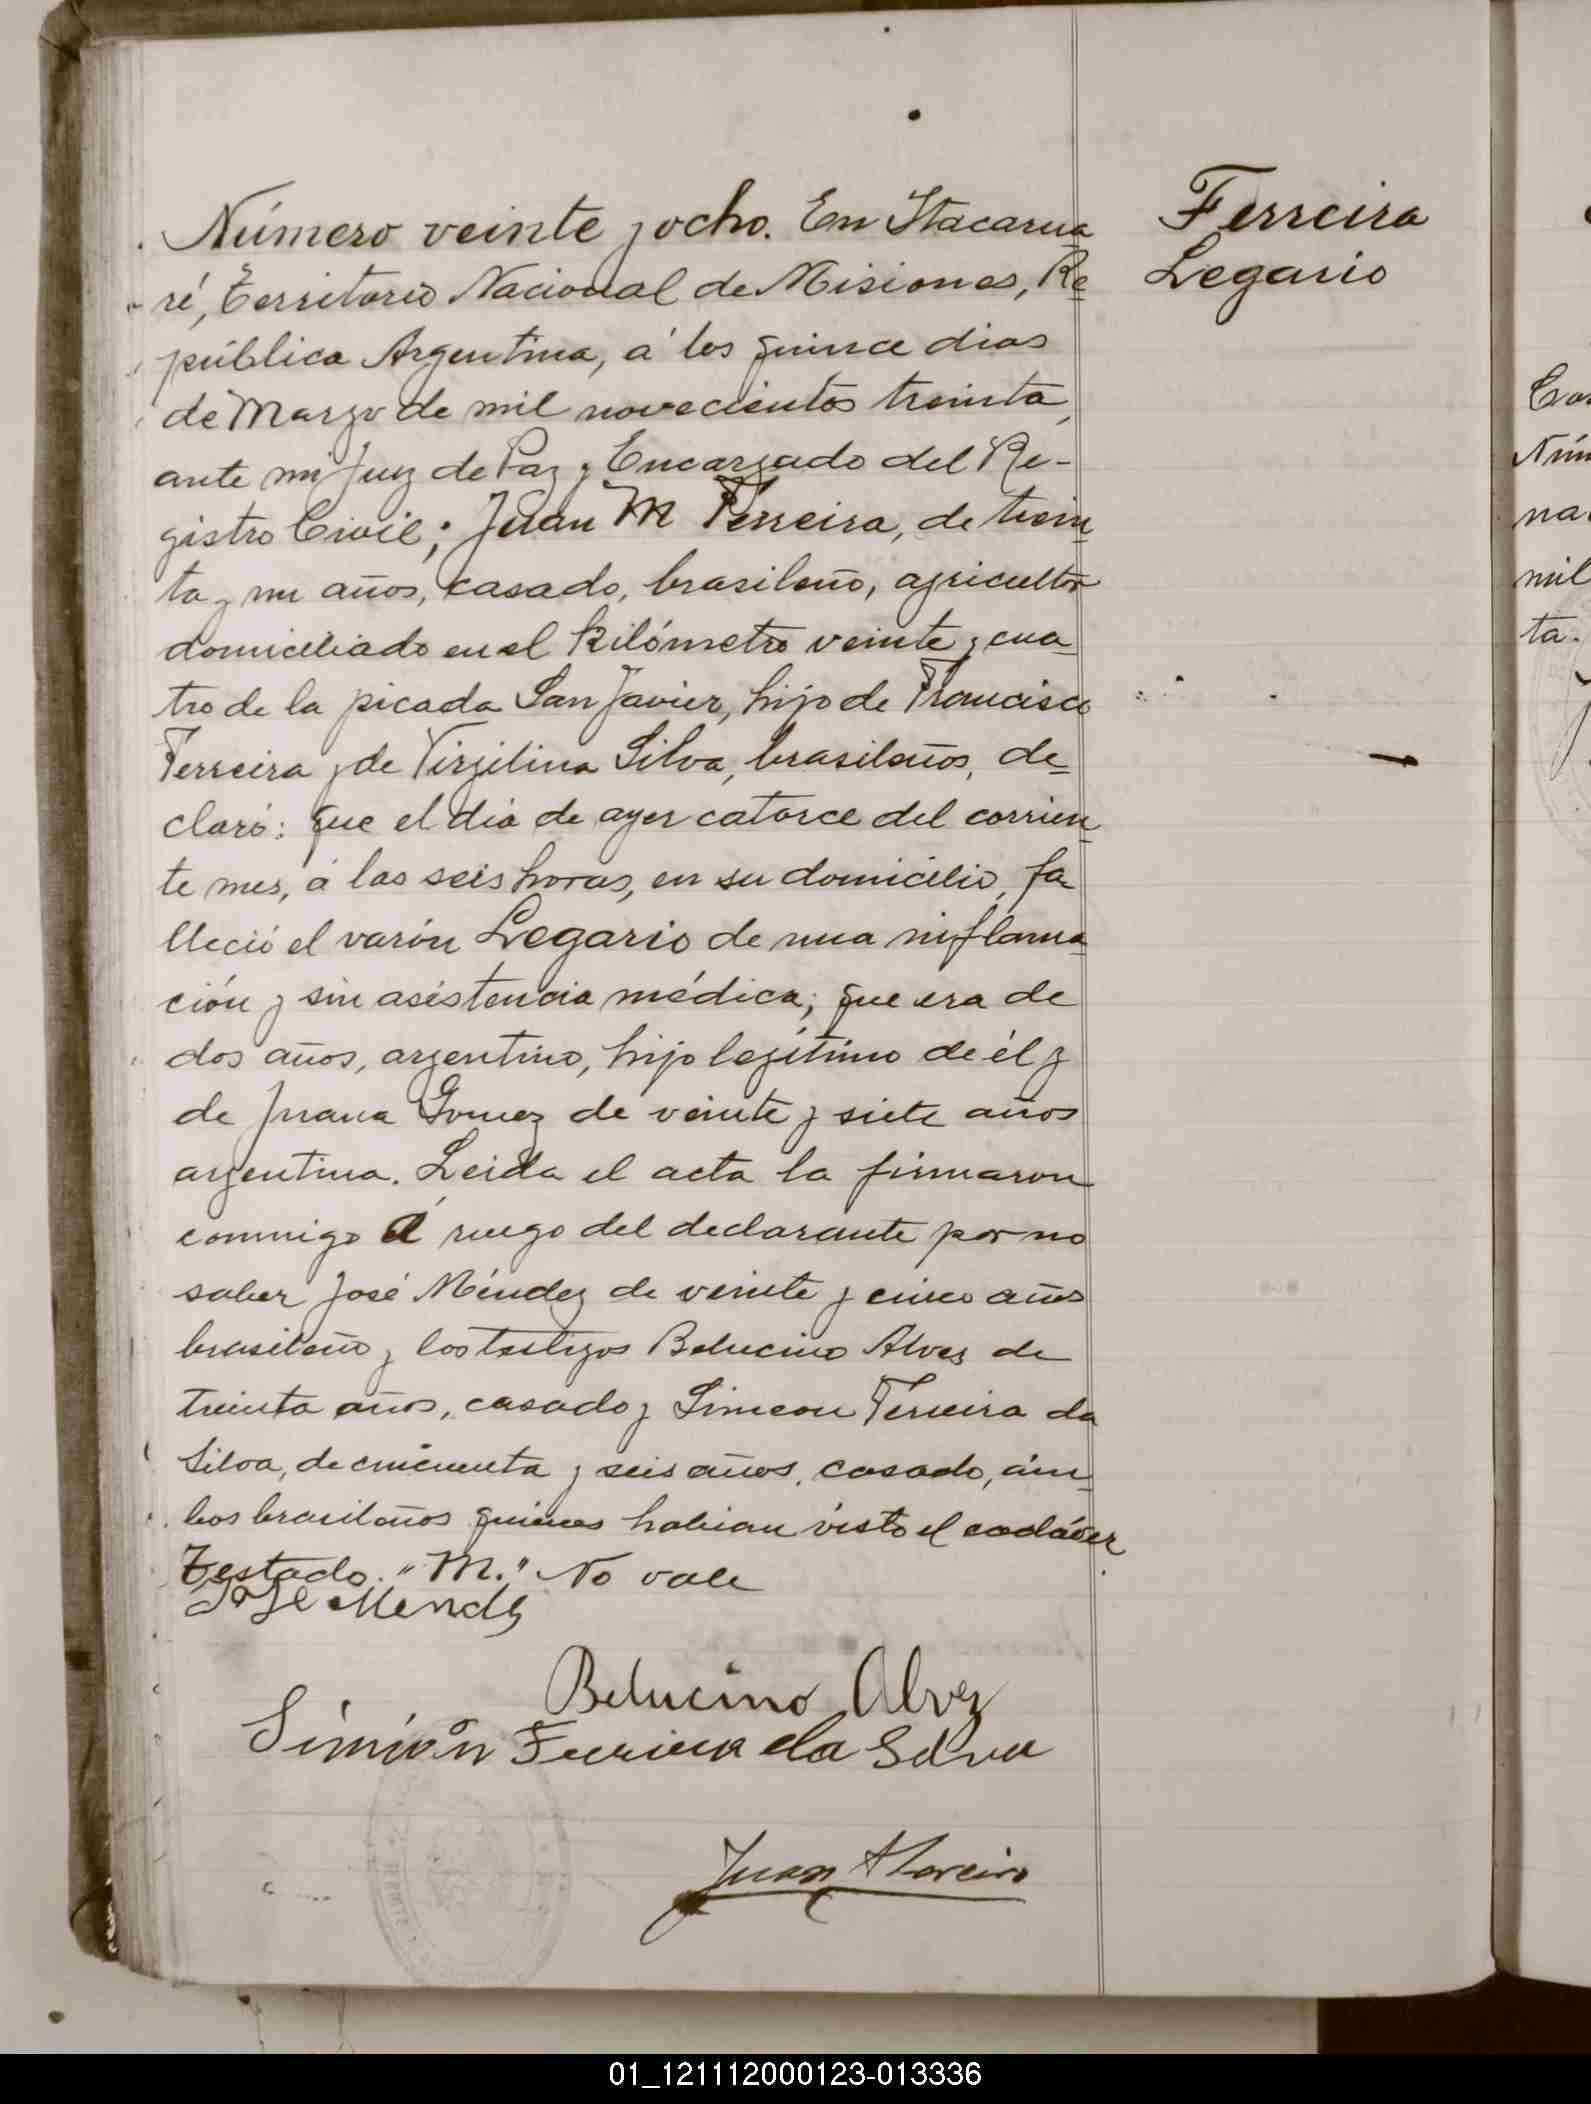 Número veinte y ocho. En Itacarua
ré, Territorio Nacional de Misiones, Re
pública Argentina, á los quince dias
de Marzo de mil novecientos treinta,
ante mi Juez de Paz y Encargado del Re-
gistro Civil; Juan M Ferreira, de trein
ta y un años, casado, brasileño, agricultor
domiciliado en el kilómetro veinte y cua
tro de la picada San Javier, hijo de Francisco
Ferreira y de Virgilina Silva, brasileños, de
claró: que el dia de ayer catorce del corrien
te mes, á las seis horas, en su domicilio, fa
lleció el varón Legario de una inflama
ción y sin asistencia médica; que era de
dos años, argentino, hijo legítimo de él y
de Juana Gomez de veinte y siete años
argentina. Leida el acta la firmaron
conmigo á ruego del declarante por no
saber José Méndez de veinte y cinco años
brasileño y los testigos Belucino Alvez de
treinta años, casado y Simeon Ferreira da
Silva, de cincuenta y seis años, casado, ám
bos brasileños quienes habian visto el cadáver
Testado. "M." No vale
José Mendez
Belucino Alvez
Simión Ferreira da Silva
Juan Moreira
Ferreira
Legario
Núm
na
mil
ta.
01_121112000123-013336